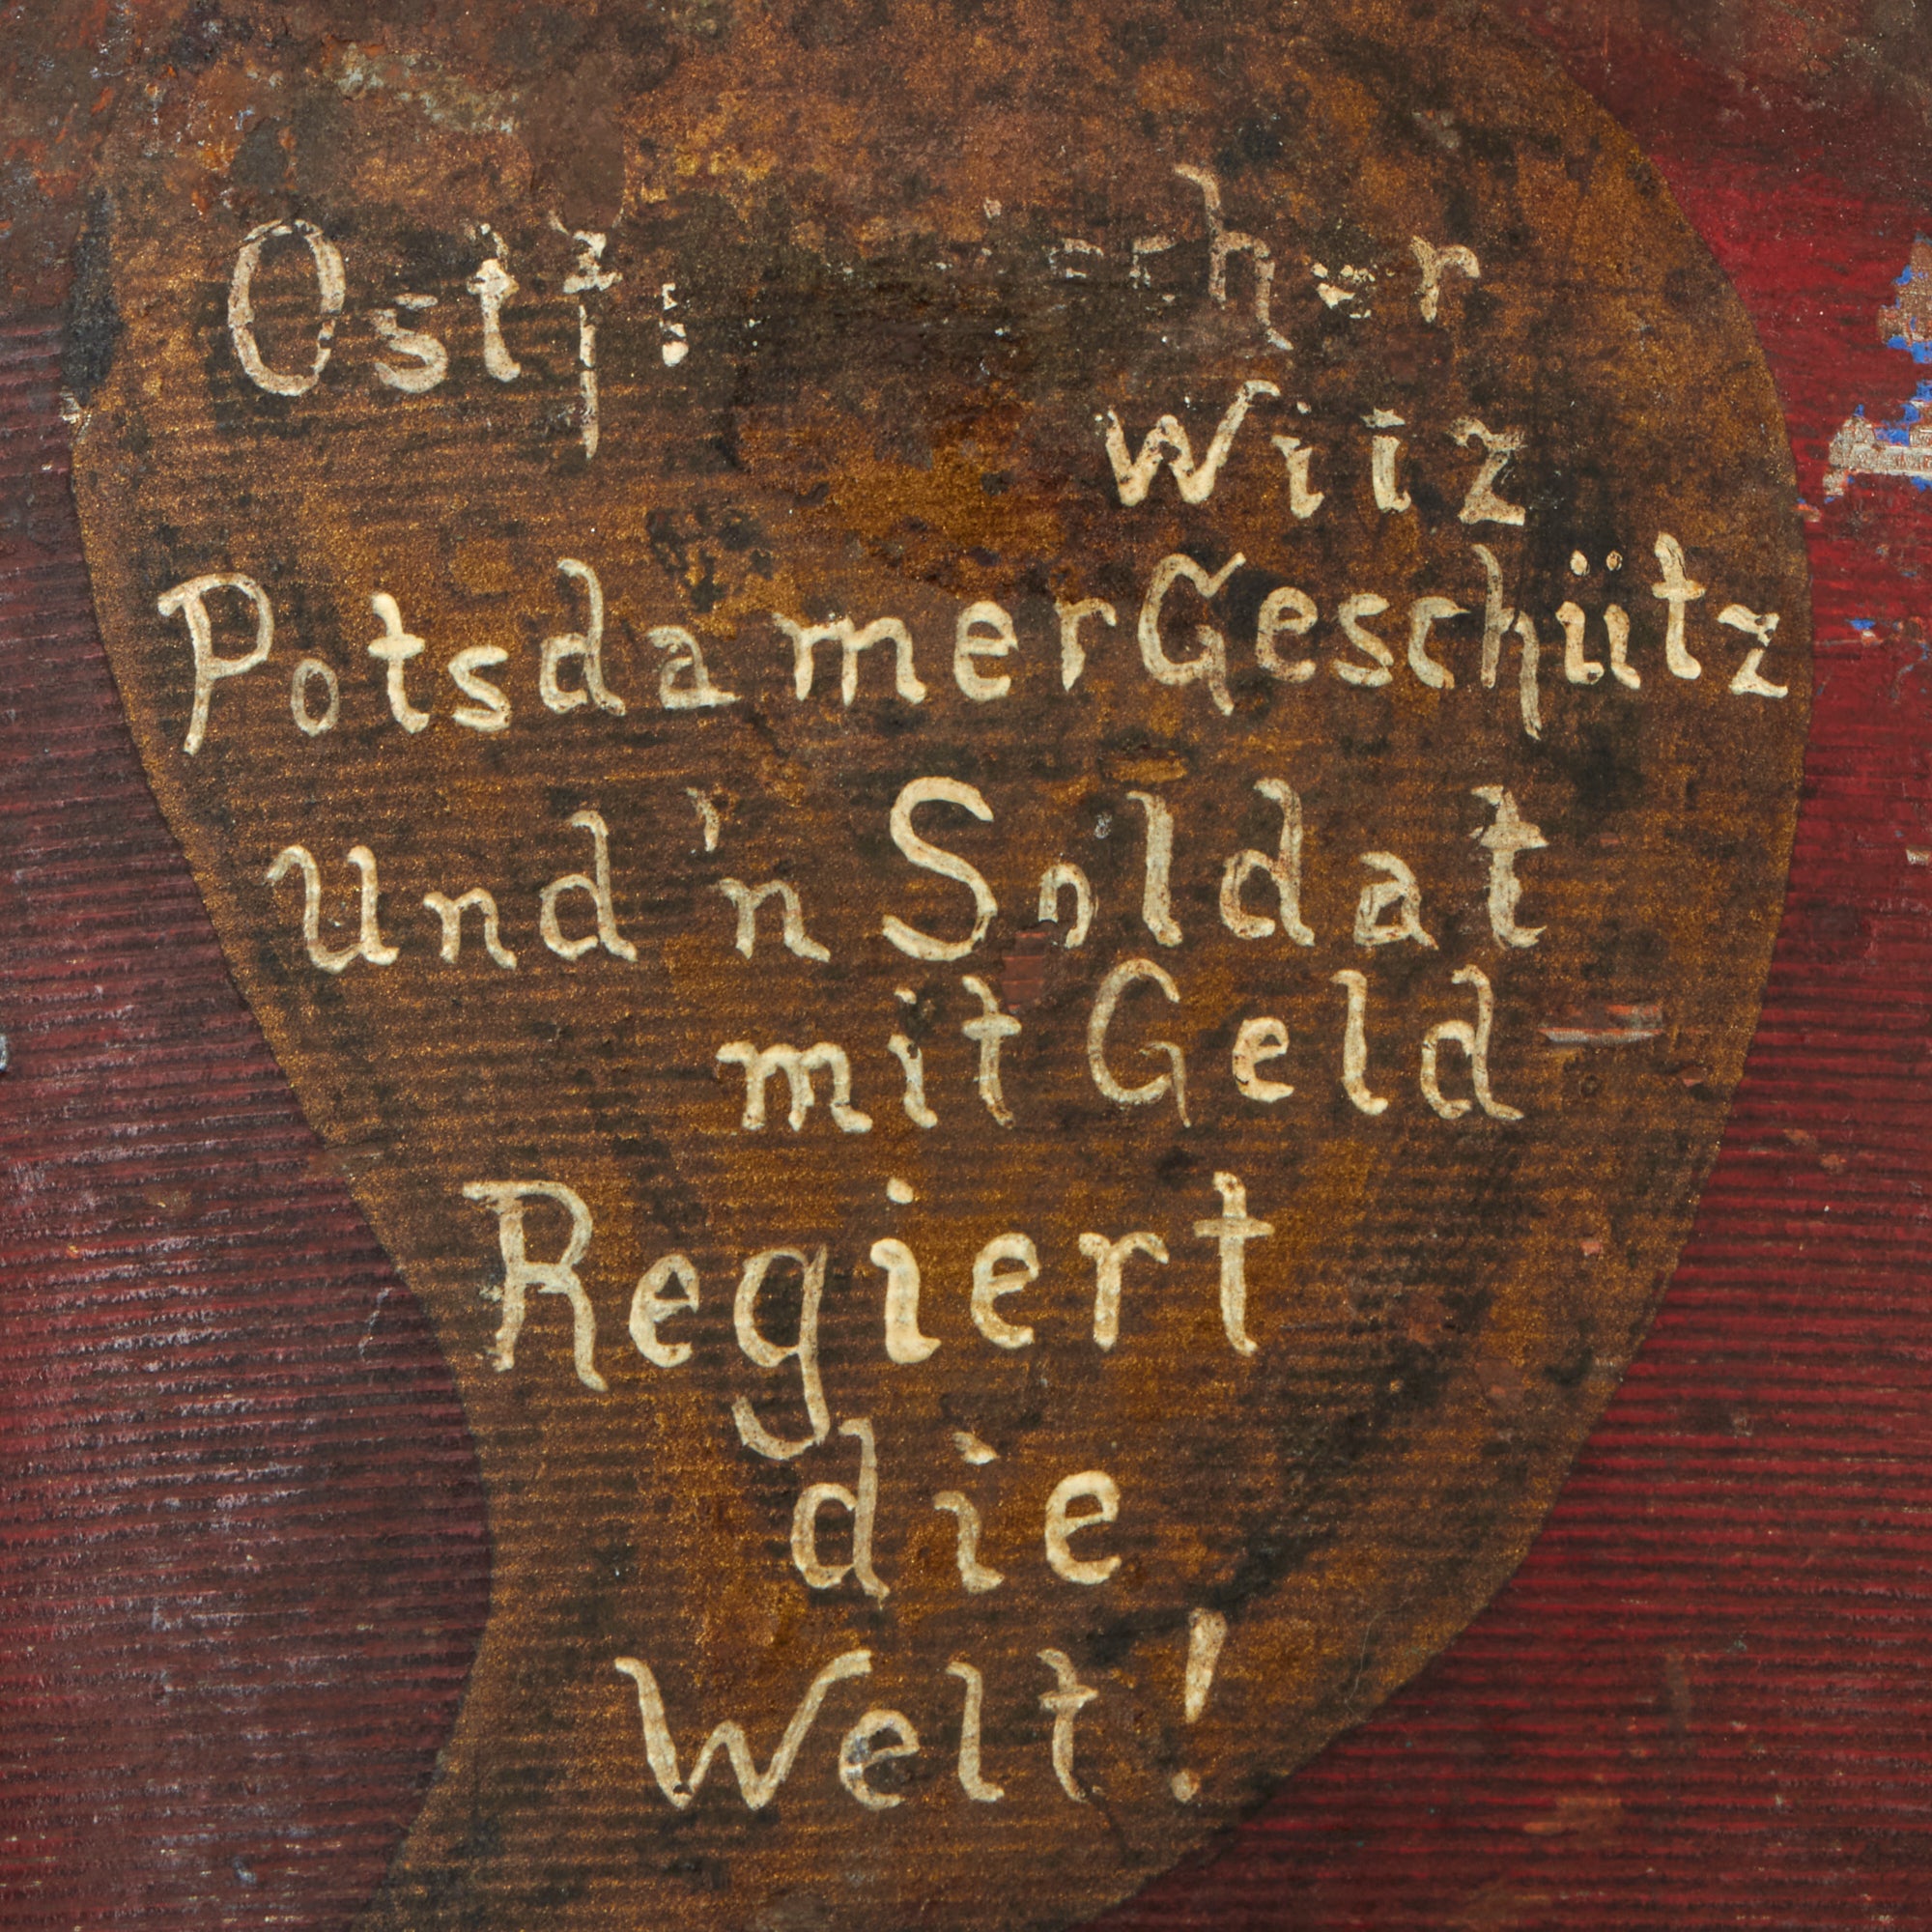 Witz
Potsdamer Geschütz
Und'n Soldat
mit Geld
Regiert
die
Welt!